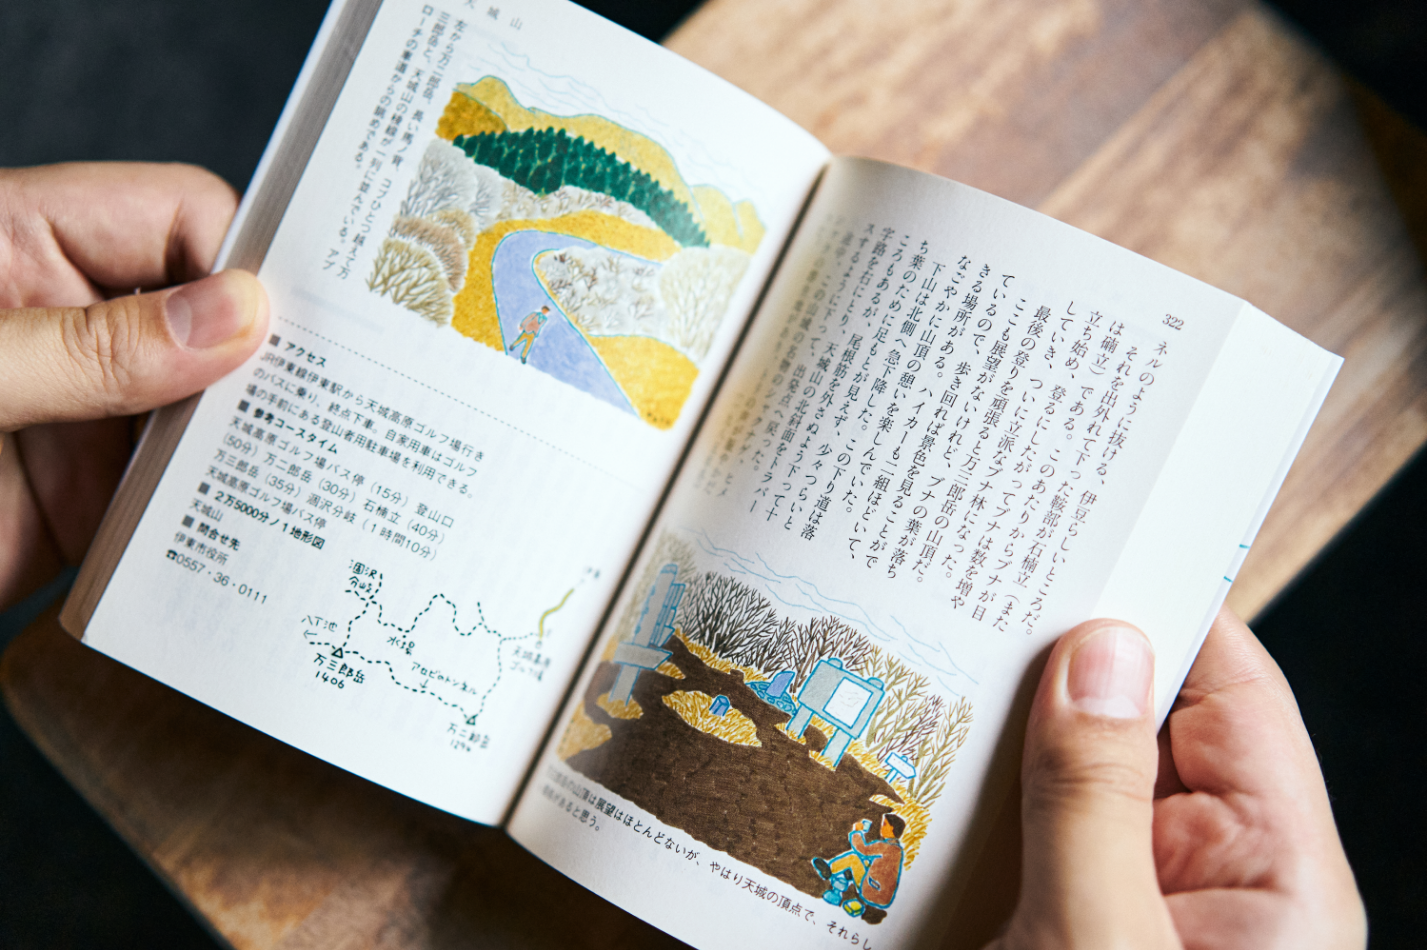 322
ネルのように抜ける、伊豆らしいところだ。
それを出外れて下った鞍部が石楠立(また
は碃立)である。このあたりからブナが目
立ち始め、登るにしたがってブナは数を増や
していき、ついに立派なブナ林になった。
最後の登りを頑張ると万三郎岳の山頂だ。
ここも展望がないけれど、ブナの葉が落ち
ているので、歩き回れば景色を見ることがで
きる場所がある。ハイカーも二組ほどいて、
なごやかに山頂の憩いを楽しんでいた。
下山は北側へ急下降した。この下り道は落
ち葉のために足もとが見えず、少々つらいと
ころもあるが、尾根筋を外さぬよう下って十
字路を右にとり、天城山の北斜面をトラバー
スするように
は展望はほとんどないが、やはり天城の頂点で、それらし
があると思う。
天城山
左から万二郎岳、長い馬ノ背、コブひとつ越えて万
三郎岳と、天城山の稜線が一列に並んでいる。アプ
ローチの車道からの眺めである。
■アクセス
JR伊東線伊東駅から天城高原ゴルフ場行き
のバスに乗り、終点下車。自家用車はゴルフ
場の手前にある登山者用駐車場を利用できる。
■参考コースタイム
天城高原ゴルフ場バス停(15分)登山口
(50分)万二郎岳(30分)石楠立(40分)
万三郎岳(35分)涸沢分岐(1時間10分)
天城高原ゴルフ場バス停
■2万5000分ノ1地形図
天城山
■問合せ先
伊東市役所
☎0557・36・0111
涸沢
分岐
八丁池
水場
万三郎岳
1406
アセビのトンネル
天城高原
ゴルフ場
万二郎岳